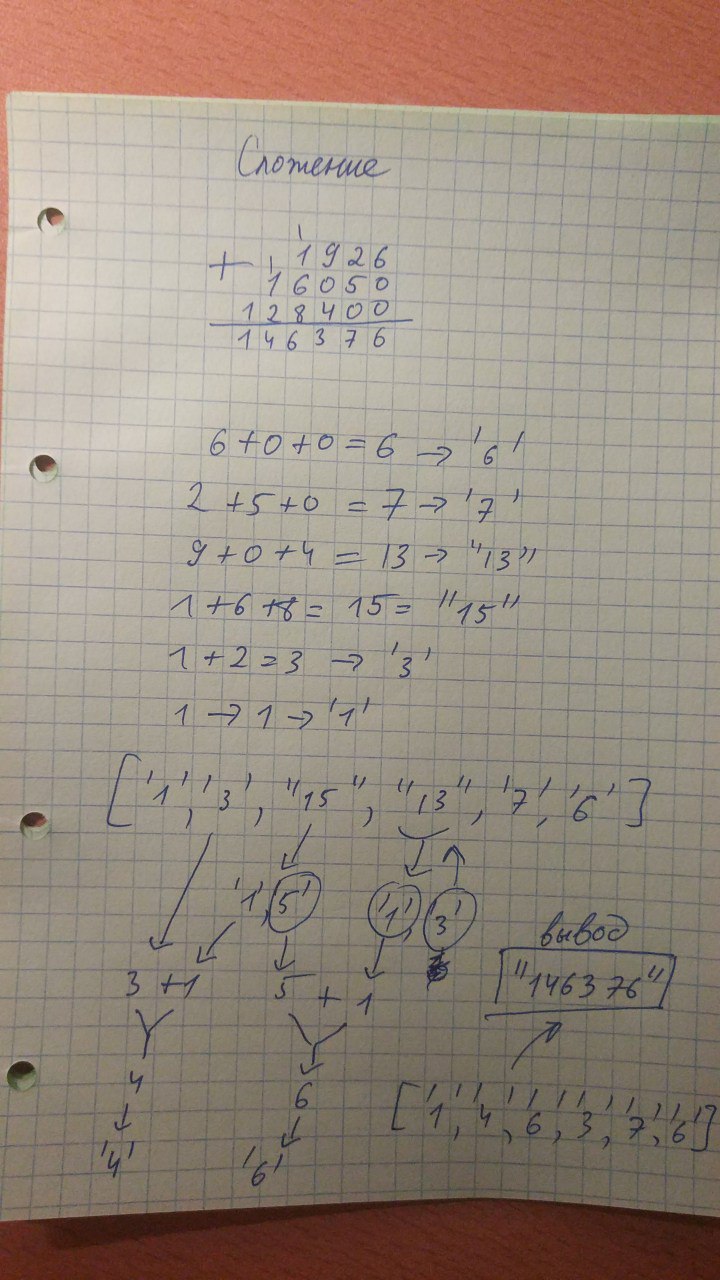 Сложение
1
+ 1 1926
16050
128400
146376
6+0+0=6 → '6'
2+5+0=7 → '7'
9+0+4=13 → "13"
1+6+8=15="15"
1+2=3 → '3'
1 → 1 → '1'
['1', '3', "15", "13", '7', '6']
'1', 5' '1', 3'
вывод
3+1 5+1 "146376"
4 6 ['1', '4', '6', '3', '7', '6']
'4' '6'